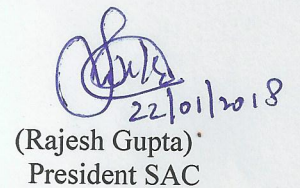 22/01/2018
(Rajesh Gupta)
President SAC